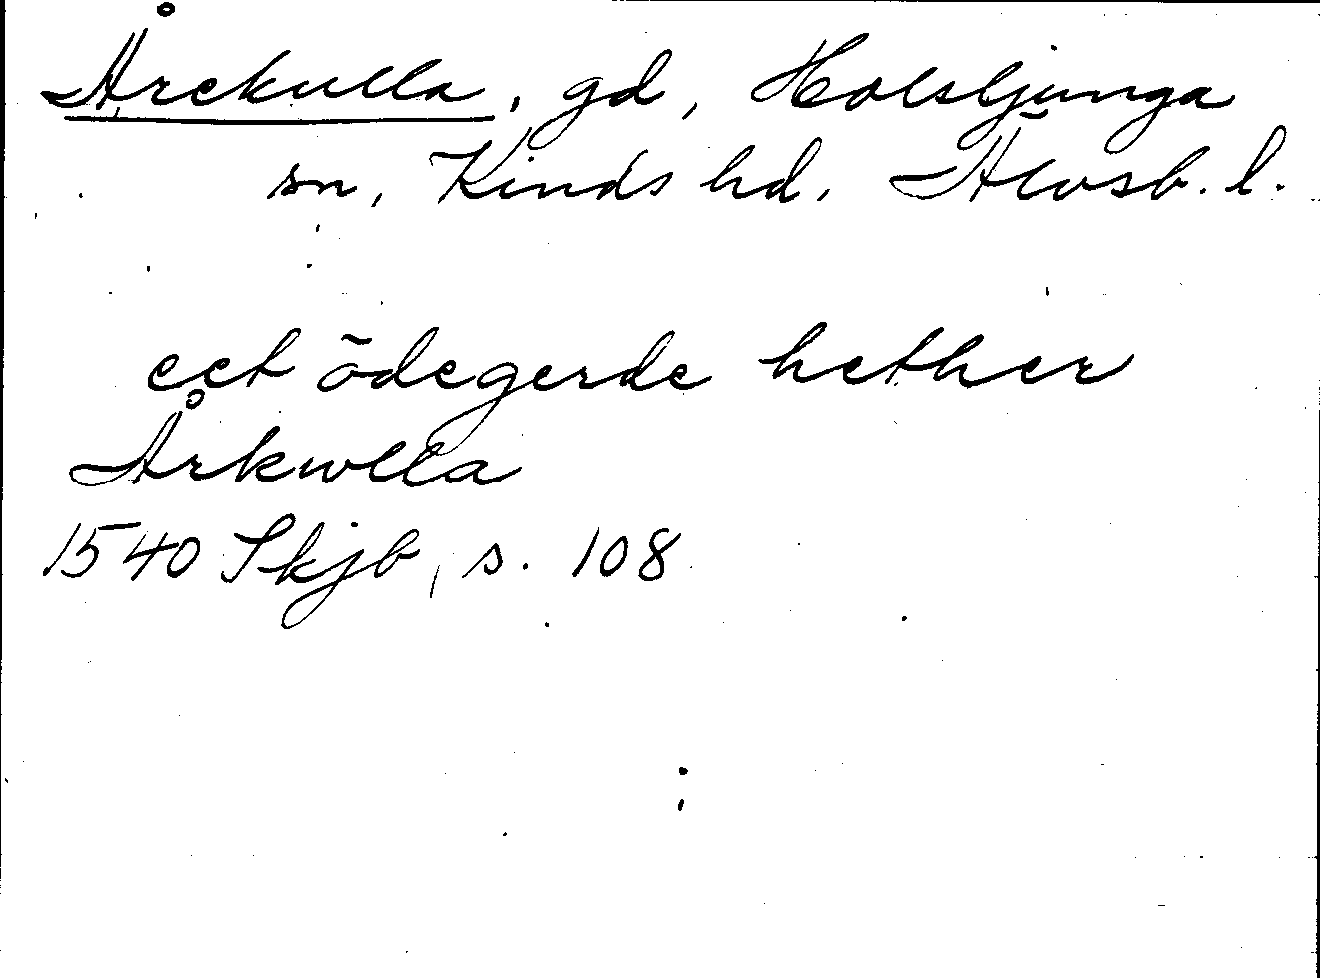 Årekulla, gd, Holsljunga
sn, Kinds hd, Älvsb. l.
eet ödegerde hether
Årkwlla
1540 Skjb, s. 108